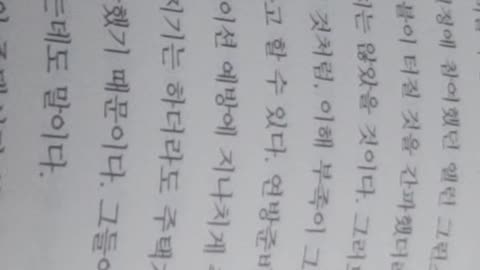 앨런 그린
품이 터질 것을 간파했더라
는 않았을 것이다. 그러
것처럼, 이해 부족이 그
고 할 수 있다. 연방준비
이션 예방에 지나치게
기는 하더라도 주택
했기 때문이다. 그들
는데도 말이다.